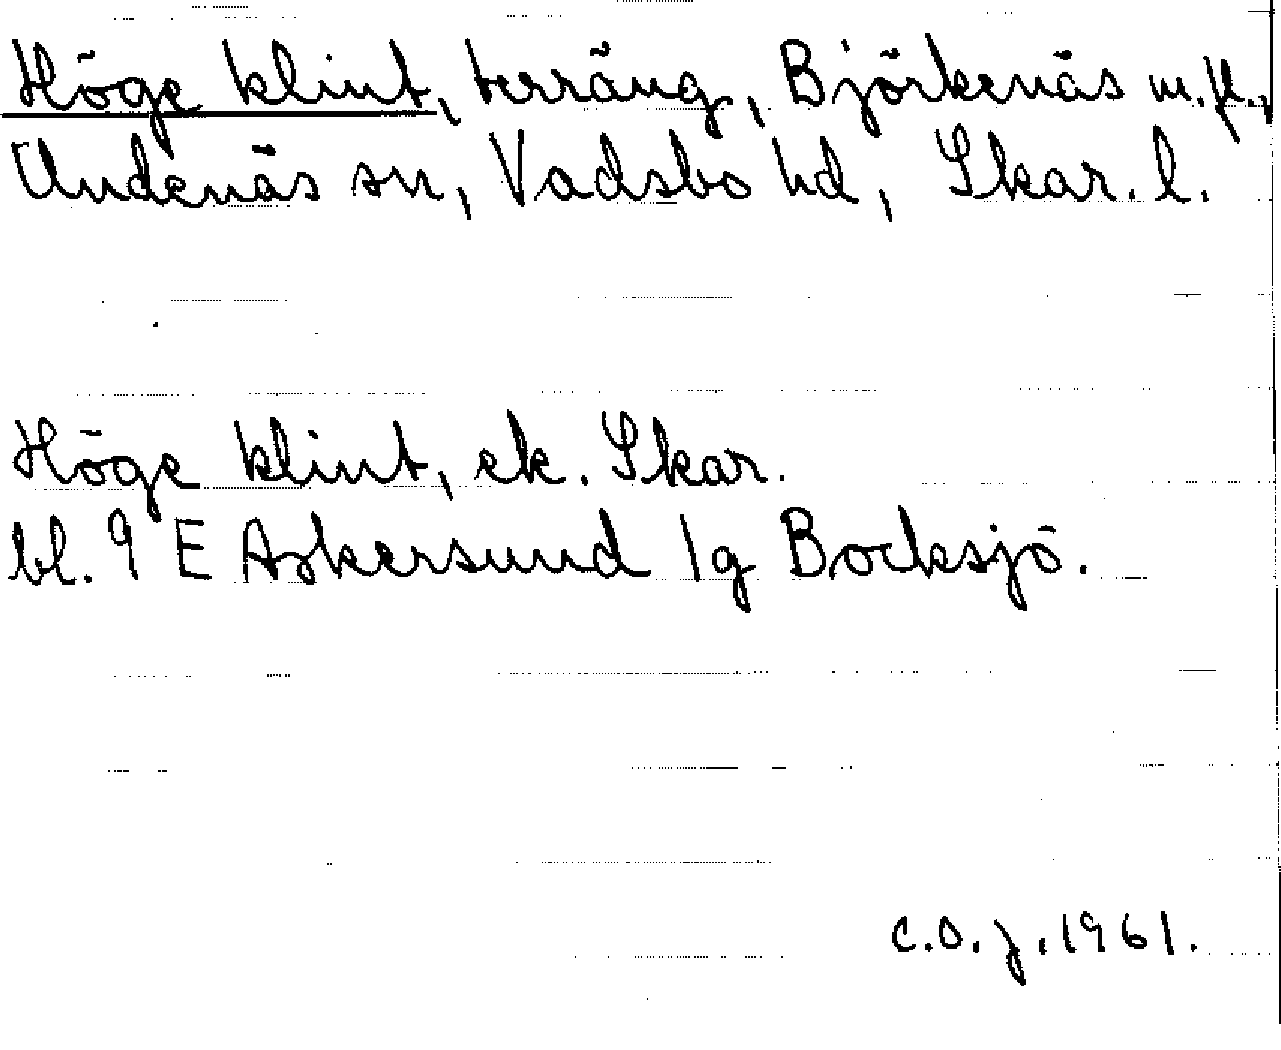 Höge klint, terräng, Björkenäs m.fl.,
Undenäs sn, Vadsbo hd, Skar. l.
Höge klint, ek. Skar.
bl. 9 E Askersund 1g Bocksjö.
C.O.J. 1961.